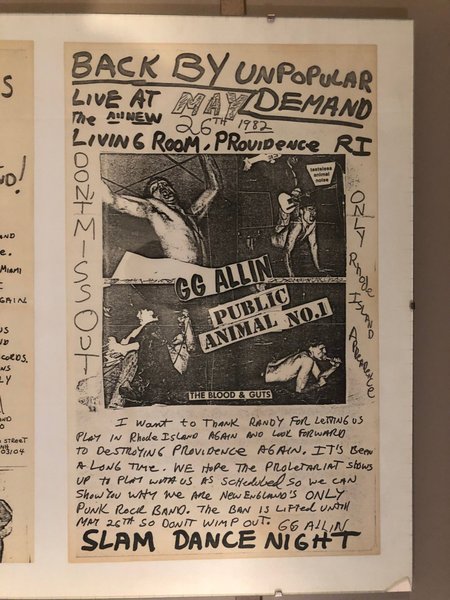 BACK BY UNPOPULAR
DEMAND
LIVE AT
MAY
26TH 1982
The All NEW
LIVING ROOM, PROVIDENCE RI
DON'T MISS OUT
tasteless
animal
noise
ONLY Rhode ISLAND APPEARENCE
GG ALLIN
PUBLIC
ANIMAL NO.1
THE BLOOD & GUTS
I WANT to THANK RANDY FOR LETTING US
PLAY IN RhODE ISLAND AGAIN AND LOOK FORWARD
TO DESTROYING PROVIDENCE AGAIN. IT'S BEEN
A LONG TIME. WE HOPE THE PROLETARIAT SHOWS
UP TO PLAY WITH US AS SCHEDULED SO WE CAN
SHOW YOU WHY WE ARE NEW ENGLAND'S ONLY
PUNK ROCK BAND. THE BAN IS LIFTED UNTIL
MAY 26TH SO DON'T WIMP OUT. GG ALLIN
SLAM DANCE NIGHT
MIAMI
AGAIN
US
CORDS.
LY
STREET
03104